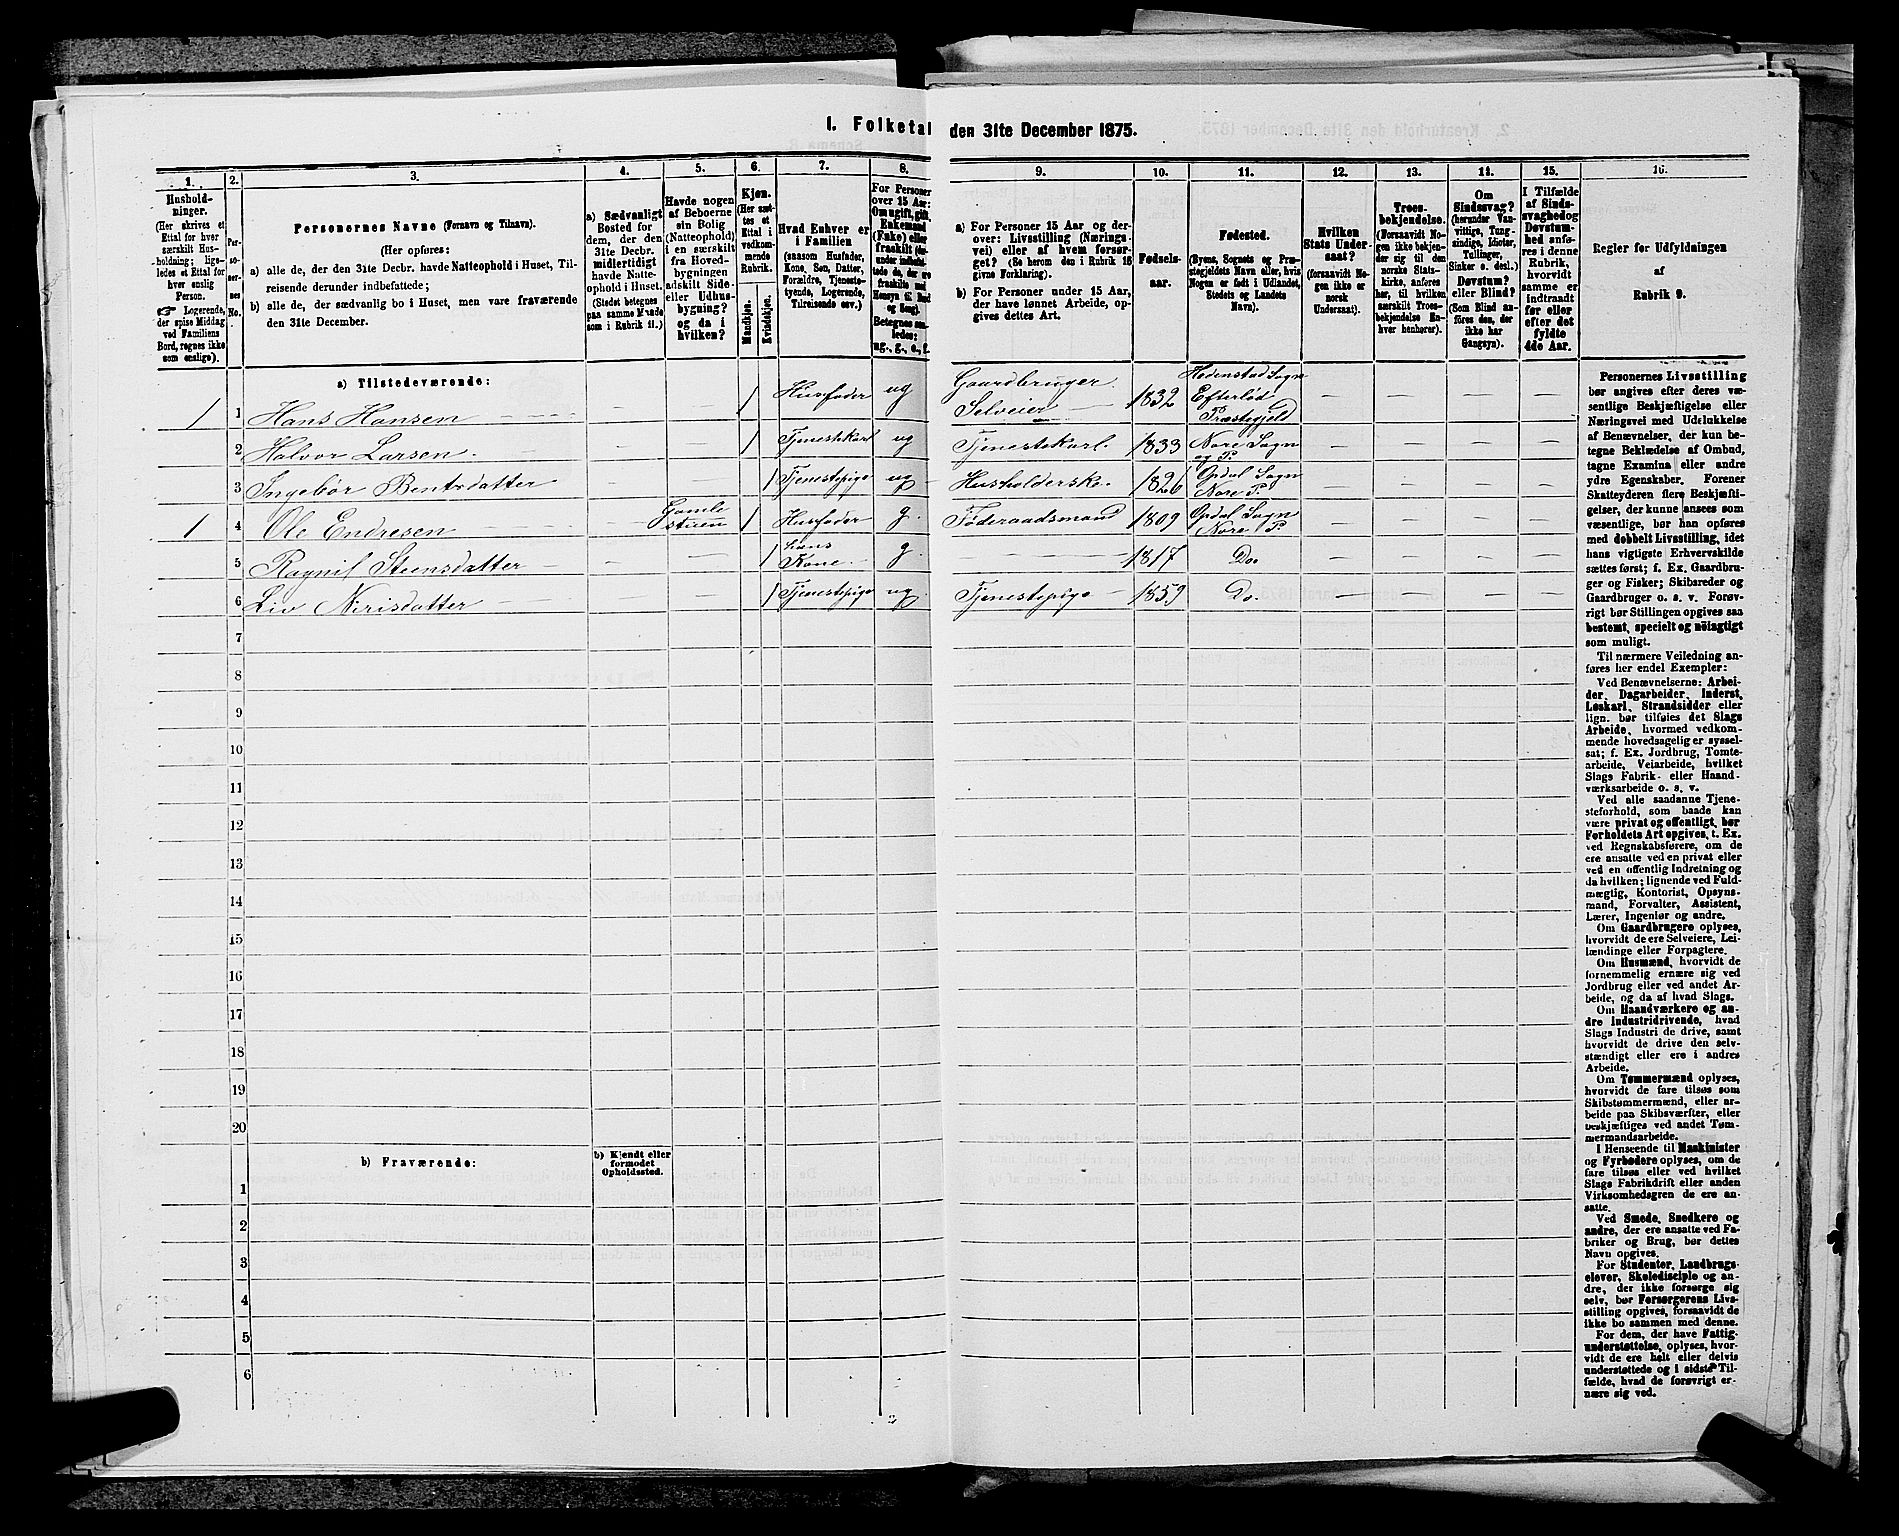 I. Folketal den 31te December 1875.
1.
Hushold-
ninger.
(Her skrives et
Ettal for hver
særskilt Hus-
holdning; lige-
ledes et Ettal for
hver enslig
Person.
☞ Logerende,
der spise Middag
ved Familiens
Bord, regnes ikke
som enslige).
2.
Per-
so-
ner-
nes
No.
3.
Personernes Navne (Fornavn og Tilnavn).
(Her opføres:
a) alle de, der den 31te Decbr. havde Natteophold i Huset, Til-
reisende derunder indbefattede;
b) alle de, der sædvanlig bo i Huset, men vare fraværende
den 31te December.
4.
a) Sædvanligt
Bosted for
dem, der den
31te Decbr.
midlertidigt
havde Natte-
ophold i Huset.
(Stedet betegnes
paa samme Maade
som i Rubrik 11.)
5.
Havde nogen
af Beboerne
sin Bolig
(Natteophold)
i en særskilt
fra Hoved-
bygningen
adskilt Side-
eller Udhus-
bygning?
og da i
hvilken?
6.
Kjøn.
(Her sæt-
tes et
Ettal i
vedkom-
mende
Rubrik.
Mandkjøn.
Kvindekjøn.
7.
Hvad Enhver er
i Familien
(saasom Husfader,
Kone, Søn, Datter,
Forældre, Tjeneste-
tyende, Logerende,
Tilreisende osv.)
8.
For Personer
over 15 Aar:
Om ugift, gift,
Enkemand
(Enke) eller
fraskilt
Betegnes saa-
ledes:
ug., g., e., f.
9.
a) For Personer 15 Aar og der-
over: Livsstilling (Nærings-
vei) eller af hvem forsør-
get? (Se herom den i Rubrik 16
givne Forklaring).
b) For Personer under 15 Aar,
der have lønnet Arbeide, op-
gives dettes Art.
10.
Fødsels-
aar.
11.
Fødested.
(Byens, Sognets og Præ-
stegjeldets Navn eller, hvis
Nogen er født i Udlandet,
Stedets og Landets
Navn).
12.
Hvilken
Stats Under-
saat?
(forsaavidt No-
gen ikke er
norsk
Undersaat).
13.
Troes-
bekjendelse.
(Forsaavidt No-
gen ikke bekjen-
der sig til den
norske Stats-
kirke, anføres
her, til hvilken
særskilt Troes-
bekjendelse En-
hver henhører).
14.
Om
Sindssvag?
(herunder Van-
vittige, Tung-
sindige, Idioter,
Tullinger,
Sinker o. desl.).
Døvstum?
eller Blind?
(Som Blind an-
føres den, der
ikke har
Gangsyn).
15.
I Tilfælde
af Sinds-
svaghed og
Døvstum-
hed anfø-
res i denne
Rubrik,
hvorvidt
samme er
indtraadt
før eller
efter det
fyldte
4de Aar.
16.
Regler før Udfyldningen
af
Rubrik 9.
a) Tilstedeværende:
1 1 Hans Hansen — — 1 Husfader ug Gaardbruger Selveier 1832 Hedenstad Sogn Efterlöd Præstegjeld — — — —
2 Halvor Larsen — — 1 Tjenestekarl ug Tjenestekarl. 1833 Nore Sogn og P. — — — —
3 Ingebör Bentsdatter — — 1 Tjenestepige ug Husholderske 1826 Opdal Sogn Nore P. — — — —
1 4 Ole Endresen — Gamle stuen 1 Husfader g. Föderaadsmand 1809 Opdal Sogn Nore P. — — — —
5 Ragnil Steensdatter — — 1 hans Kone. g. — 1817 Do. — — — —
6 Liv Nirisdatter — — 1 Tjenestepige ug. Tjenestepige 1859 Do. — — — —
7
8
9
10
11
12
13
14
15
16
17
18
19
20
b) Fraværende:
b) Kjendt eller
formodet
Opholdssted.
1
2
3
4
5
6
Personernes Livsstilling
bør angives efter deres væ-
sentlige Beskjæftigelse eller
Næringsvei med Udelukkelse
af Benævnelser, der kun be-
tegne Beklædelse af Ombud,
tagne Examina eller andre
ydre Egenskaber. Forener
Skatteyderen flere Beskjæfti-
gelser, der kunne ansees som
væsentlige, bør han opføres
med dobbelt Livsstilling, idet
hans vigtigste Erhvervskilde
sættes først; f. Ex. Gaardbru-
ger og Fisker; Skibsreder og
Gaardbruger o. s. v. Forøv-
rigt bør Stillingen opgives saa
bestemt, specielt og nöiagtigt
som muligt.
Til nærmere Veiledning an-
føres her endel Exempler:
Ved Benævnelserne: Arbei-
der, Dagarbeider, Inderst,
Løskarl, Strandsidder eller
lign. bør tilføies det Slags
Arbeide, hvormed vedkom-
mende hovedsagelig er syssel-
sat; f. Ex. Jordbrug, Tomte-
arbeide, Veiarbeide, hvilket
Slags Fabrik- eller Haand-
værksarbeide o. s. v.
Ved alle saadanne Tjene-
steforhold, som baade kan
være privat og offentligt, bør
Forholdets Art opgives, t. Ex.
ved Regnskabsførere, om de
ere ansatte ved en privat eller
ved en offentlig Indretning og
da hvilken; lignende ved Fuld-
mægtig, Kontorist, Opsyns-
mand, Forvalter, Assistent,
Lærer, Ingeniør og andre.
Om Gaardbrugere oplyses,
hvorvidt de ere Selveiere, Lei-
lændinge eller Forpagtere.
Om Husmænd, hvorvidt de
fornemmelig ernære sig ved
Jordbrug eller ved andet Ar-
beide, og da af hvad Slags.
Om Haandværkere og an-
dre Industridrivende, hvad
Slags Industri de drive, samt
hvorvidt de drive den selv-
stændigt eller ere i andres
Arbeide.
Om Tømmermænd oplyses,
hvorvidt de fare tilsøs som
Skibstømmermænd, eller ar-
beide paa Skibsværfter, eller
beskjæftiges ved andet Tøm-
mermandsarbeide.
I Henseende til Maskinister
og Fyrbødere oplyses, om de
fare tilsøs eller ved hvilket
Slags Fabrikdrift eller anden
Virksomhedsgren de ere an-
satte.
Ved Smede, Snedkere og
andre, der ere ansatte ved Fa-
briker og Brug, bør dettes
Navn opgives.
For Studenter, Landbrugs-
elever, Skoledisciple og an-
dre, der ikke forsørge sig
selv, bør Forsørgerens Livs-
stilling opgives, forsaavidt de
ikke bo sammen med denne.
For dem, der have Fattig-
understøttelse, oplyses, hvor-
vidt de ere helt eller delvis
understøttede og i sidste Til-
fælde, hvad de forøvrigt er-
nære sig ved.